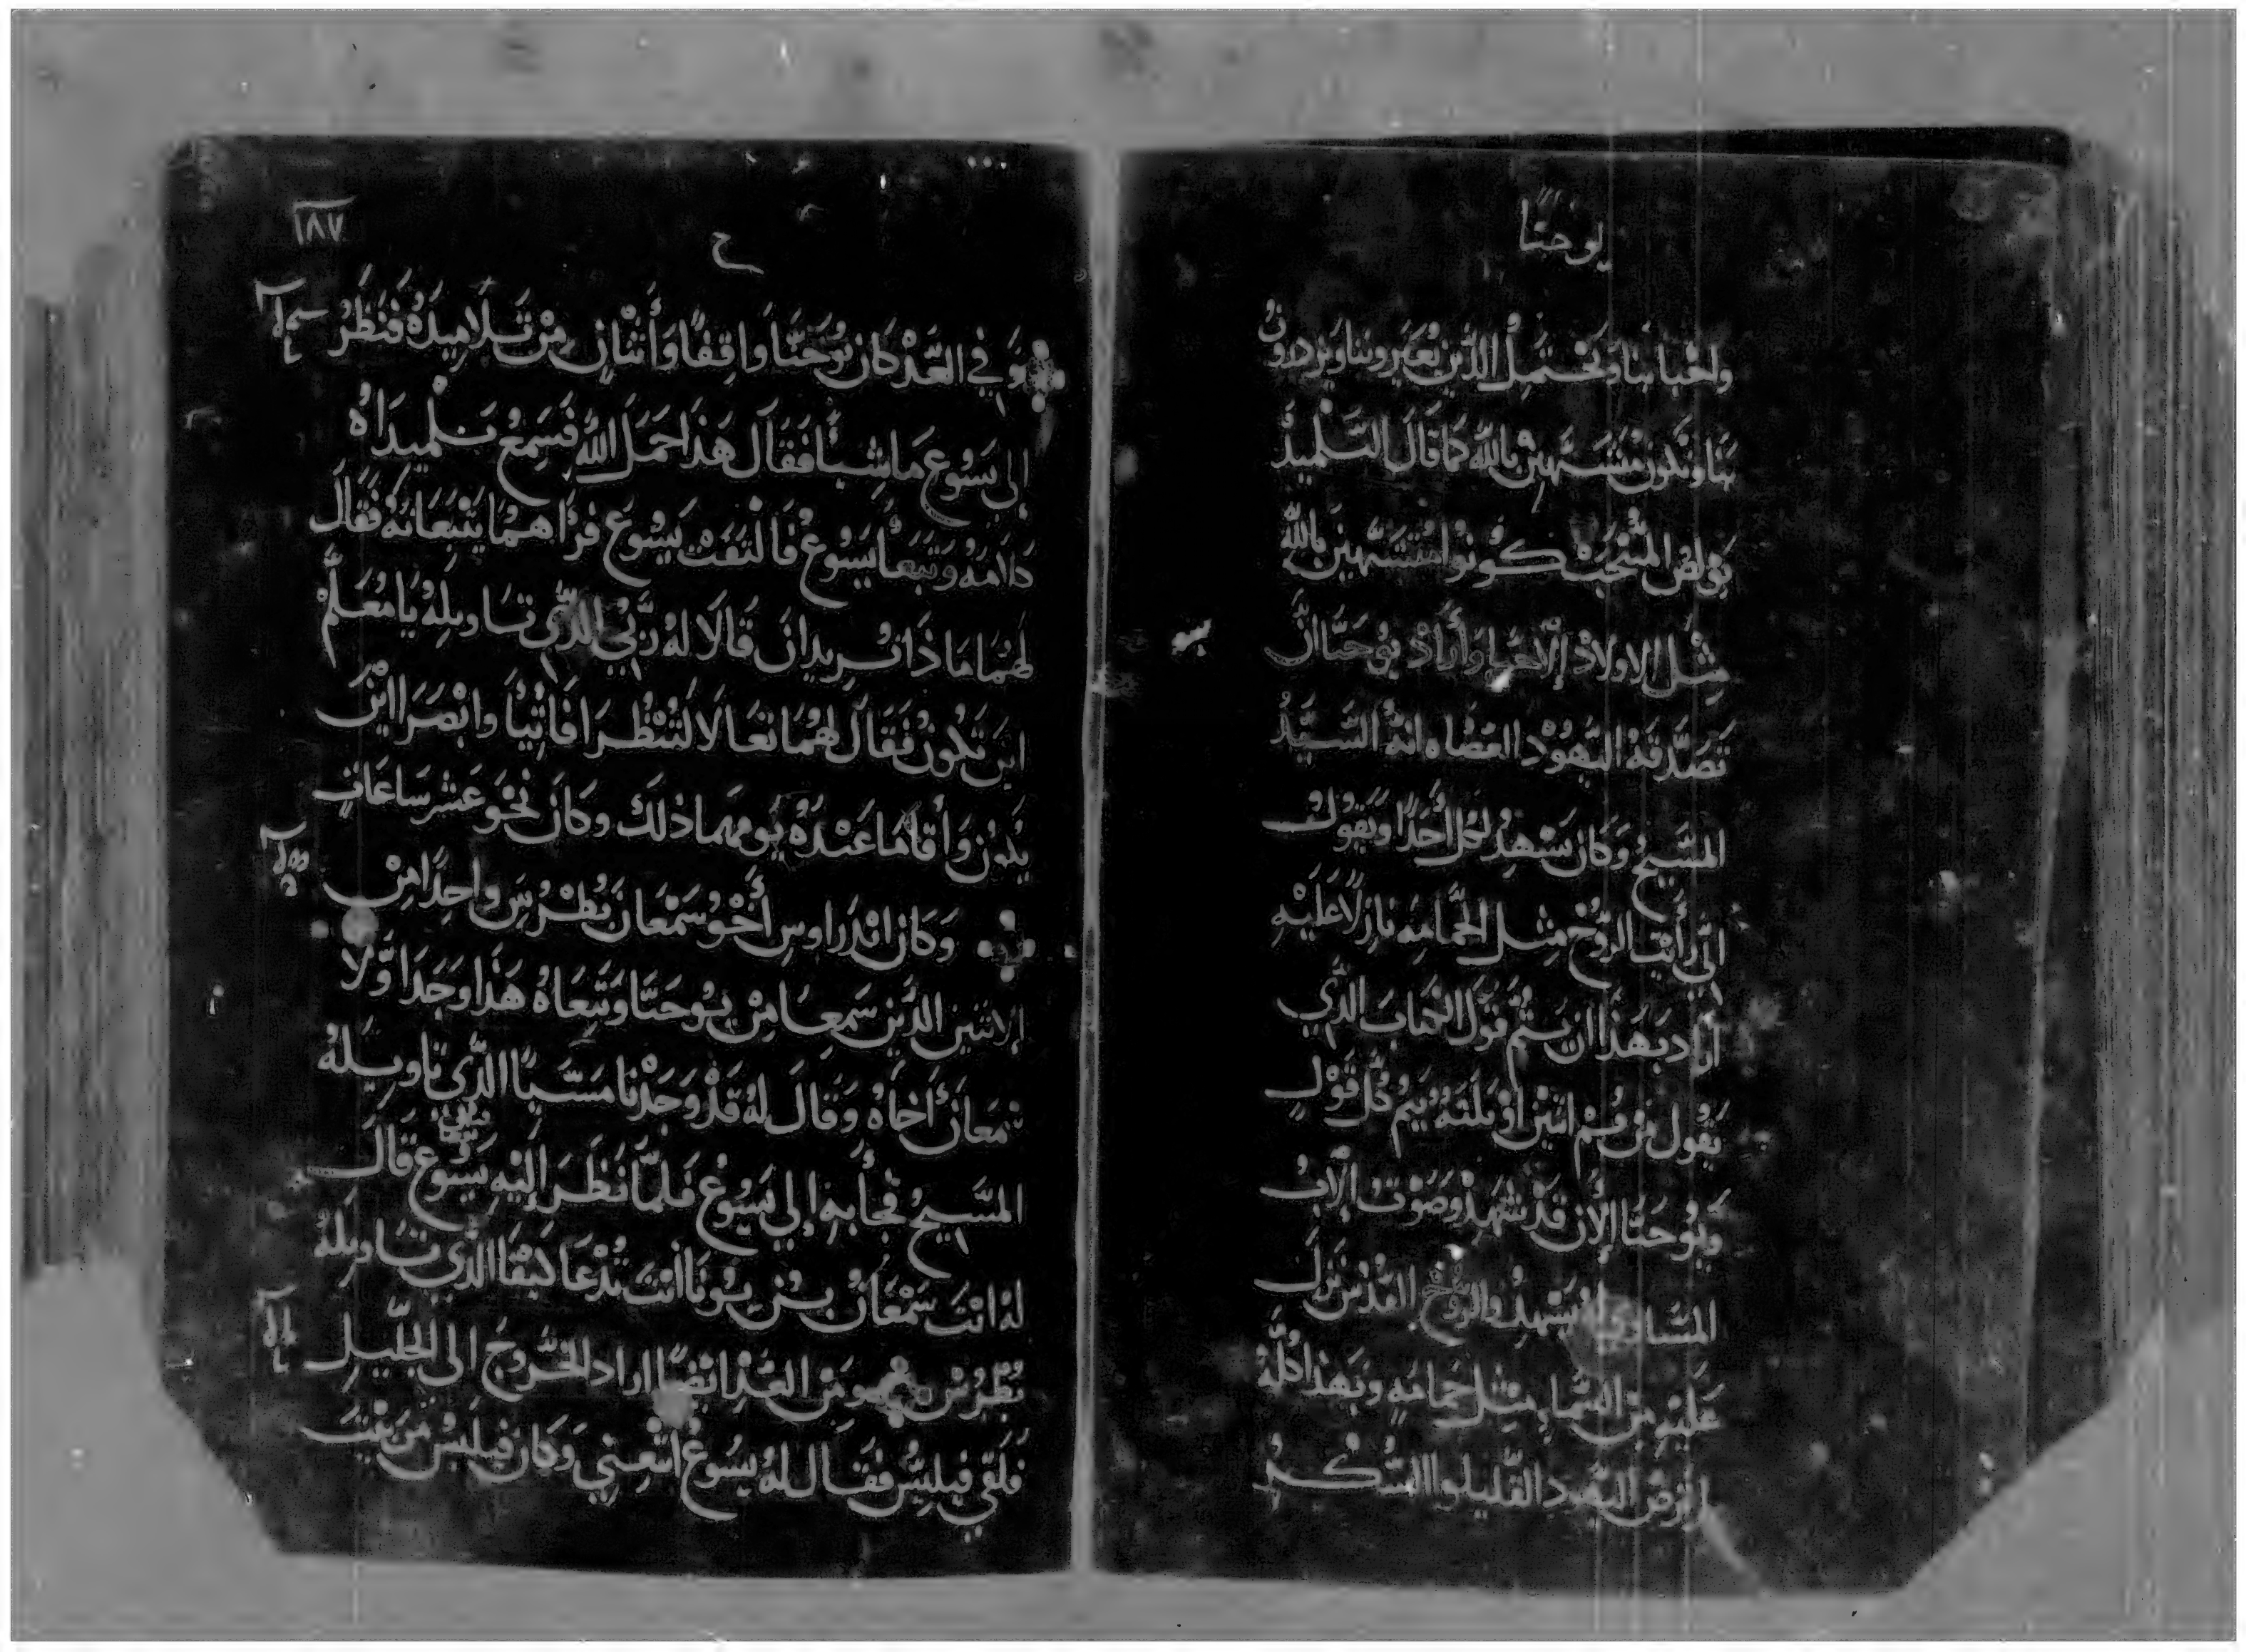 يوحنا
واحبابنا ونحتمل الذين يعيرونا ويزدرون
بنا ونكون متشبهين بالله كما قال التلميذ
بولص المنتخب كونوا متشبهين بالله
مثل الاولاد الاحبا وأراد يوحنا ان
تصدقه اليهود العصاه انه السيد
المسيح وكان يشهد لكل أحدا ويقول
اني رأيت الروح مثل الحمامه نازلا عليه
اراد بهذا ان يتم قول الكتاب الذي
يقول من فم اثنين او ثلثه يتم كل قول
ويوحنا الأن قد شهد وصوت الآب
المساوي له يشهد والروح القدس نزل
عليه من السما مثل حمامه وبهذا كله
لم ترض اليهود القليلوا الشكر
١٨٧
ح
وفي الغد كان يوحنا واقفا وأثنان من تلاميذه فنظر
إلى يسوع ماشيا فقال هذا حمل الله فسمع تلميذاه
كلامه وتبعا يسوع فالتفت يسوع فرأاهما يتبعانه فقال
لهما ماذا تريدان قالا له ربي الذي تاويله يا معلم
اين تكون فقال لهما تعالا لتنظرا فاتيا وابصرا اين
يكون وأقاما عنده يومهما ذلك وكان نحو عشر ساعات
وكان اندراوس أخو سمعان بطرس واحدا من
الاثنين الذين سمعا من يوحنا وتبعاه هذا وجد اولا
سمعان أخاه وقال له قد وجدنا مسيا الذي تاويله
المسيح فجأ به إلى يسوع فلما نظر اليه يسوع قال
له انت سمعان بن يونا انت تدعا كيفا الذي تاويله
بطرس ومن الغد ايضا اراد الخروج الى الجليل
فلقي فيلبس فقال له يسوع اتبعني وكان فيلبس من بيت